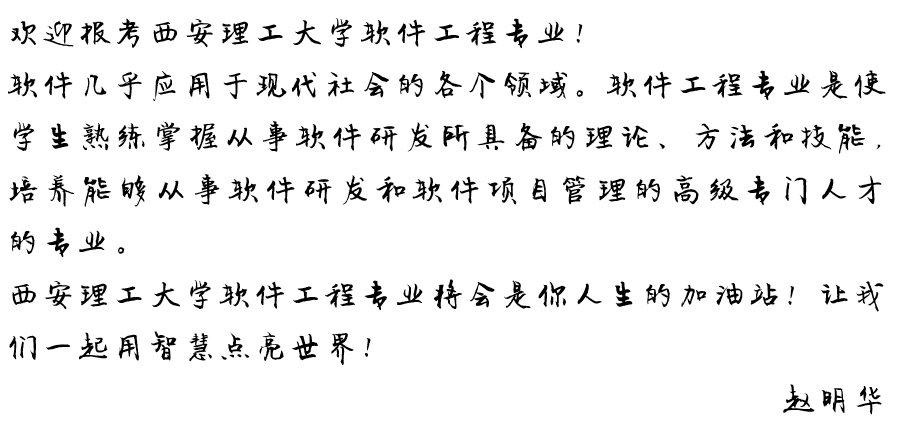 欢迎报考西安理工大学软件工程专业！
软件几乎应用于现代社会的各个领域。软件工程专业是使
学生熟练掌握从事软件研发所具备的理论、方法和技能，
培养能够从事软件研发和软件项目管理的高级专门人才
的专业。
西安理工大学软件工程专业将会是你人生的加油站！让我
们一起用智慧点亮世界！
赵明华